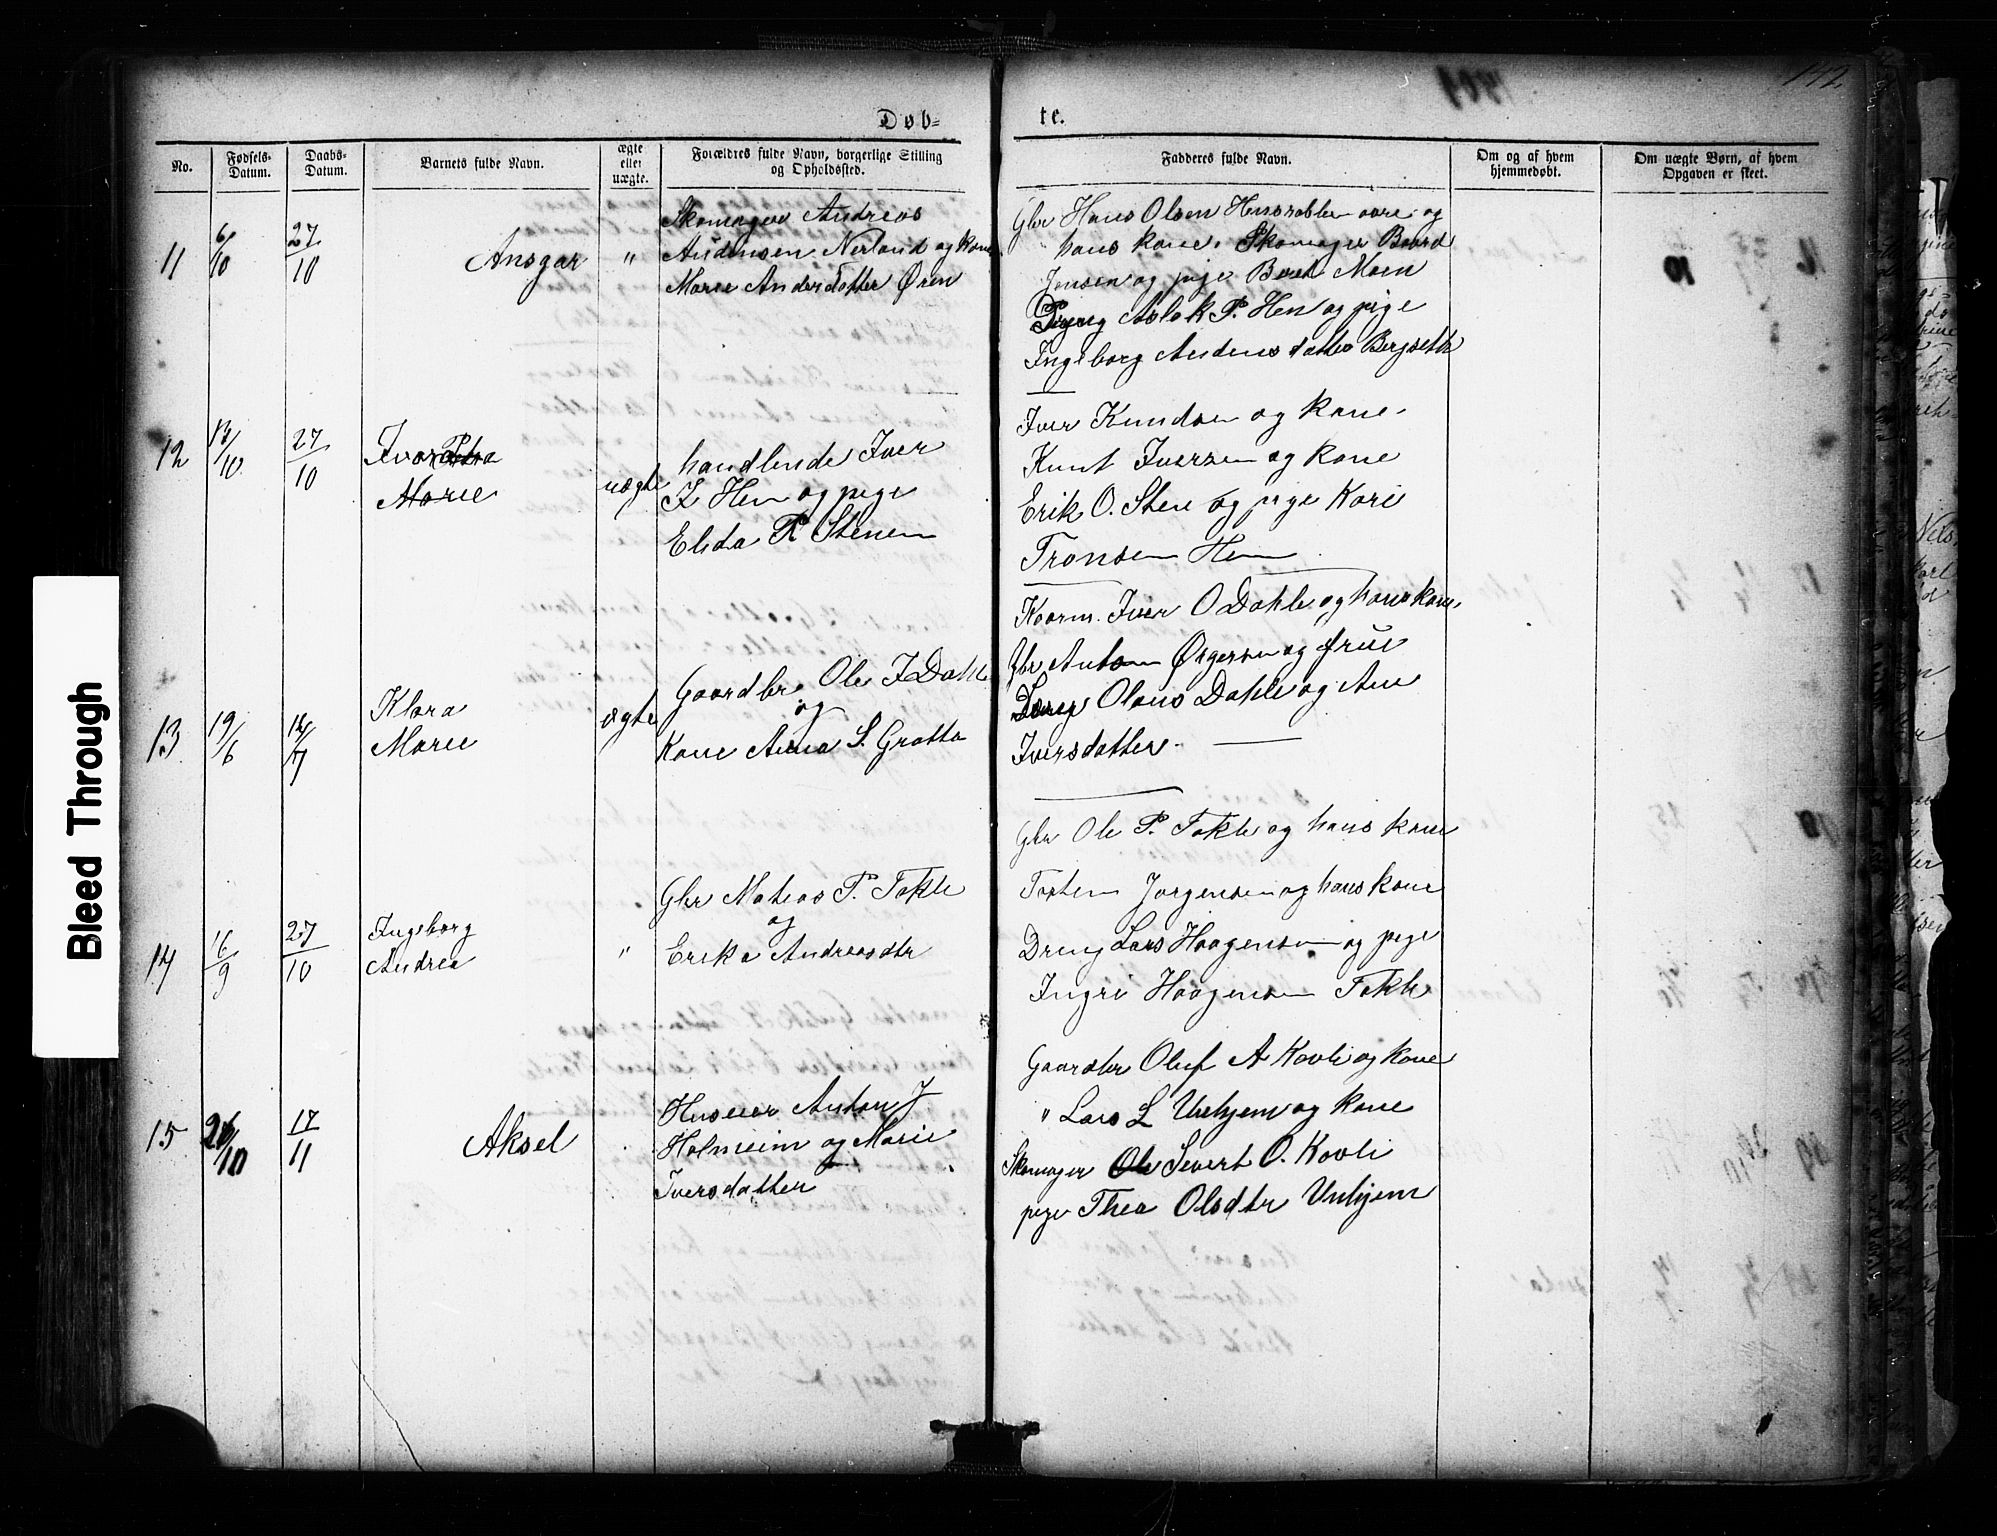 142
Døb-
te.
No.
Fødsels-
Datum.
Daabs-
Datum.
Barnets fulde Navn.
ægte
eller
uægte.
Forældres fulde Navn, borgerlige Stilling
og Opholdssted.
Fadderes fulde Navn.
Om og af hvem
hjemmedøbt.
Om uægte Børn, af hvem
Opgaven er skeet.
11
6/10
27/10
Ansgar
"
Skomager Andreas
Andersen Nerland og kone
Marie Andersdatter Øren
Gbr Hans Olsen og
" hans kone. Skomager Baard
Jensen og pige Beret Moen
Aslak P. Hen og pige
Ingeborg Andersdatter Bergseth
12
13/10
27/10
Marie
uægte
handlende Iver
I Hen og pige
Elida P Stenen
Iver Knudsen og kone.
Knut Iversen og kone
Erik O. Stene og pige Kari
Tronsen Hen
13
19/6
14/7
Klara
Marie
ægte
Gaardbr. Ole I Dahle
og
Kone Anna S. Grotta
Kaarm. Iver O Dahle og hans kone.
Gbr Anton Ørgersen og frue
Olaus Dahle og Ane
Iversdatter.
14
16/9
27/10
Ingeborg
Andrea
"
Gbr Mateas P. Tokle
og
Erika Andreasdtr
Gbr Ole P. Tokle og hans kone
Torsten Jørgensen og hans kone
Dreng Lars Haagensen og pige
Ingri Haagensen Tokle
15
26/10
17/11
Aksel
Huseier Anton J
Holmeim og Marie
Iversdatter
Gaardbr Oluf A Kavli og kone
" Lars L Unhjem og kone
Skomager Ole Sivert O. Kavli
pige Thea Olsdtr Unhjem
Bleed Through